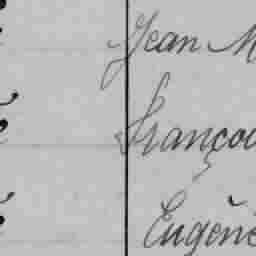 Jean M
Françoi
Eugène